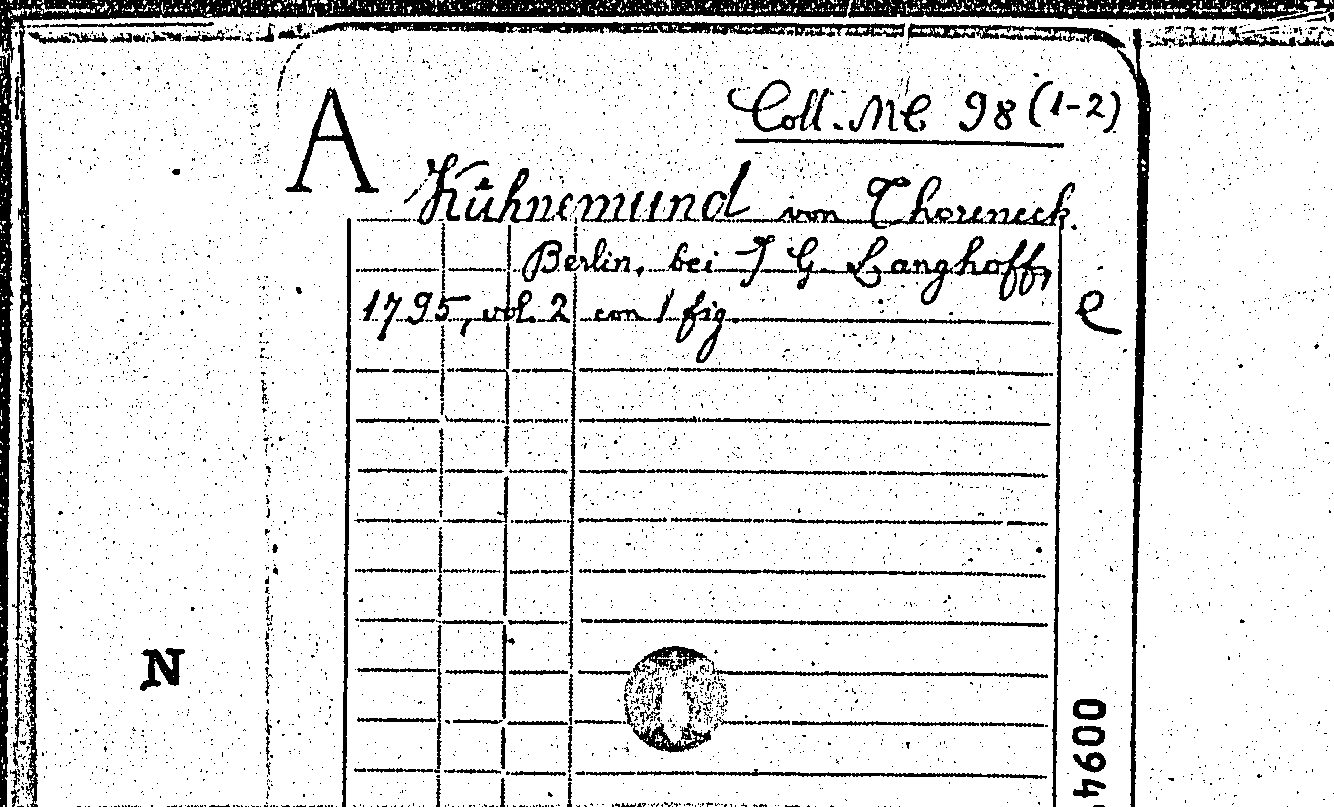 Coll. MC 98 (1-2)
A
Kühnemund von Thoreneck.
Berlin, bei J G. Langhoff,
1795, vol. 2 con 1 fig.
e
N
0094